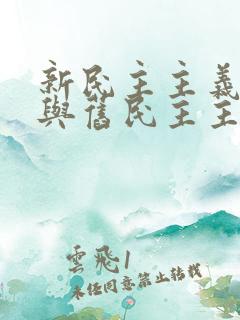 新民主主義
與舊民主主
雲飛1
未经同意禁止转载